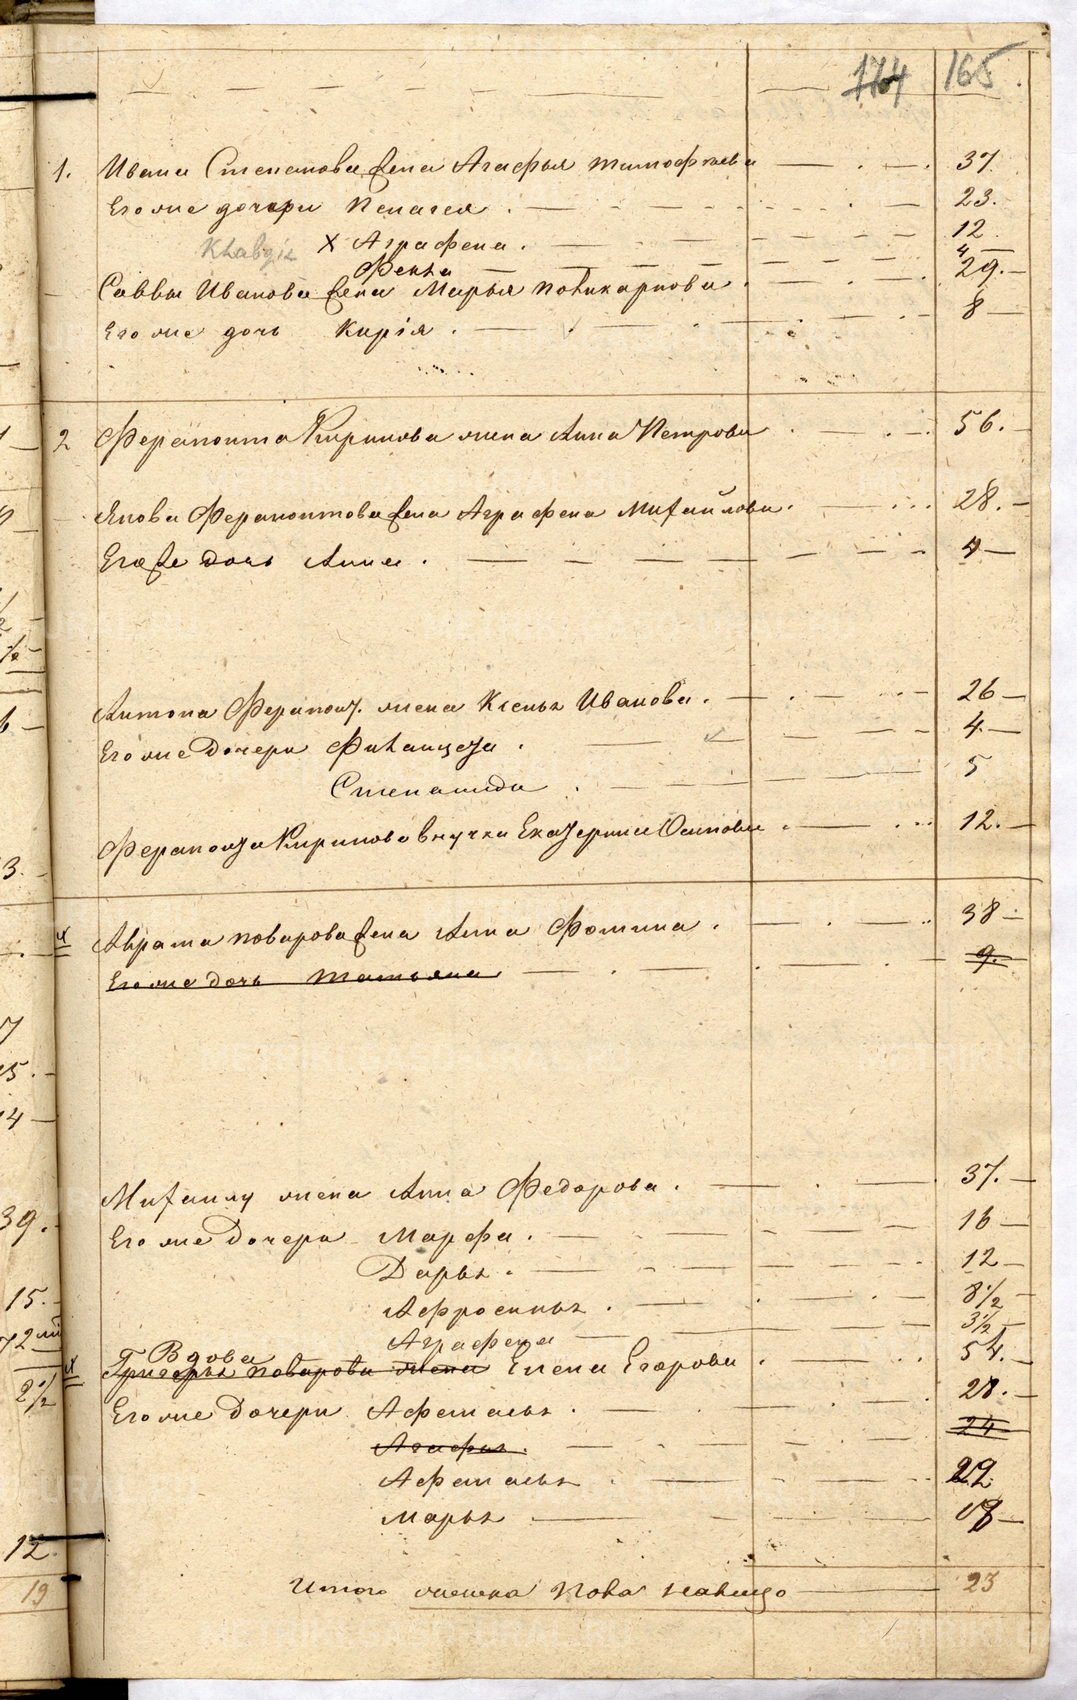 174 165
1. Ивана Степанова жена Агафья Тимофеева 37
Его же дочери Пелагея 23.
х Аграфена 12
Фекла 4
Саввы Иванова жена Марья Поликарпова 29.
Его же дочь Кирія 8
2 Ферапонта Кирилова жена Анна Петрова 56.
Якова Ферапонтова жена Аграфена Михайлова 28.
Его же дочь Анна 4
Антона Ферапонт. жена Ксенья Иванова 26
Его же дочери Филанцета 4
Степанида 5
Ферапонта Кирилова внучка Екатерина Осипова 12.
Аврама поварова жена Анна Фомина 38
Его же дочь Татьяна 9.
Михаилу жена Анна Федорова 37.
Его же дочери Марфа 16
Дарья 12
Афросинья 8 1/2
Аграфена 3 1/2
Вдова
Григорья поварова жена Елена Егорова 54.
Его же дочери Афенасья 28.
Агафья 24
Афенасья 22
Марья 18
Итого женска пола налицо 23